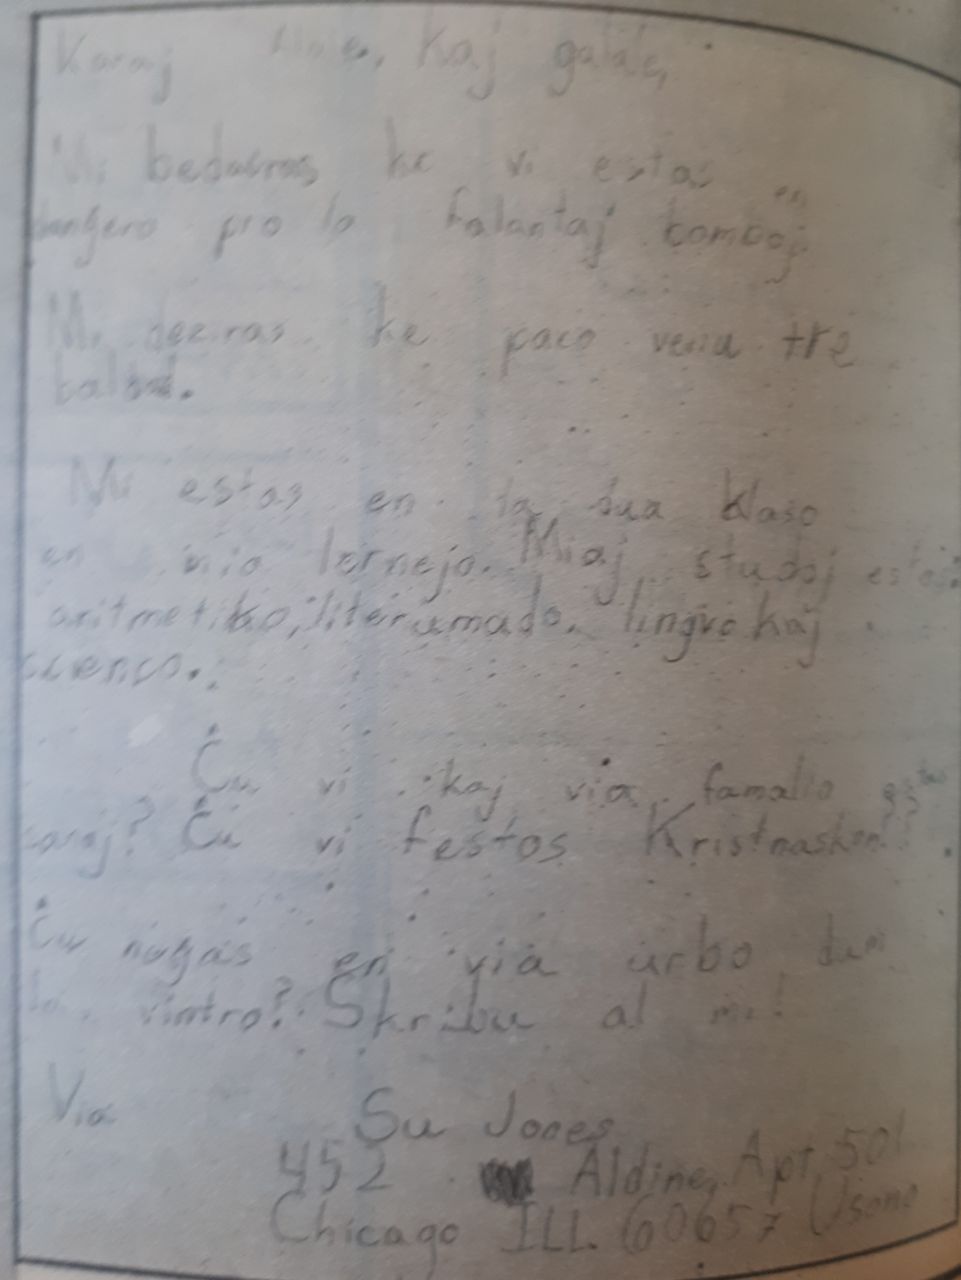 Karaj kaj
Mi bedaŭras ke vi estas en
danĝero pro la falantaj bomboj
Mi deziras ke paco venu tre
baldaŭ.
Mi estas en la dua klaso
en mia lernejo. Miaj studoj estas
aritmetiko, literumado, lingvo kaj
scienco.
Ĉu vi kaj via famalio estas
sanaj? Ĉu vi festos Kristnaskon?
Ĉu neĝas en via urbo dum
la vintro? Skribu al mi!
Via Su Jones
452 Aldine, Apt 501
Chicago ILL. 60657 Usono